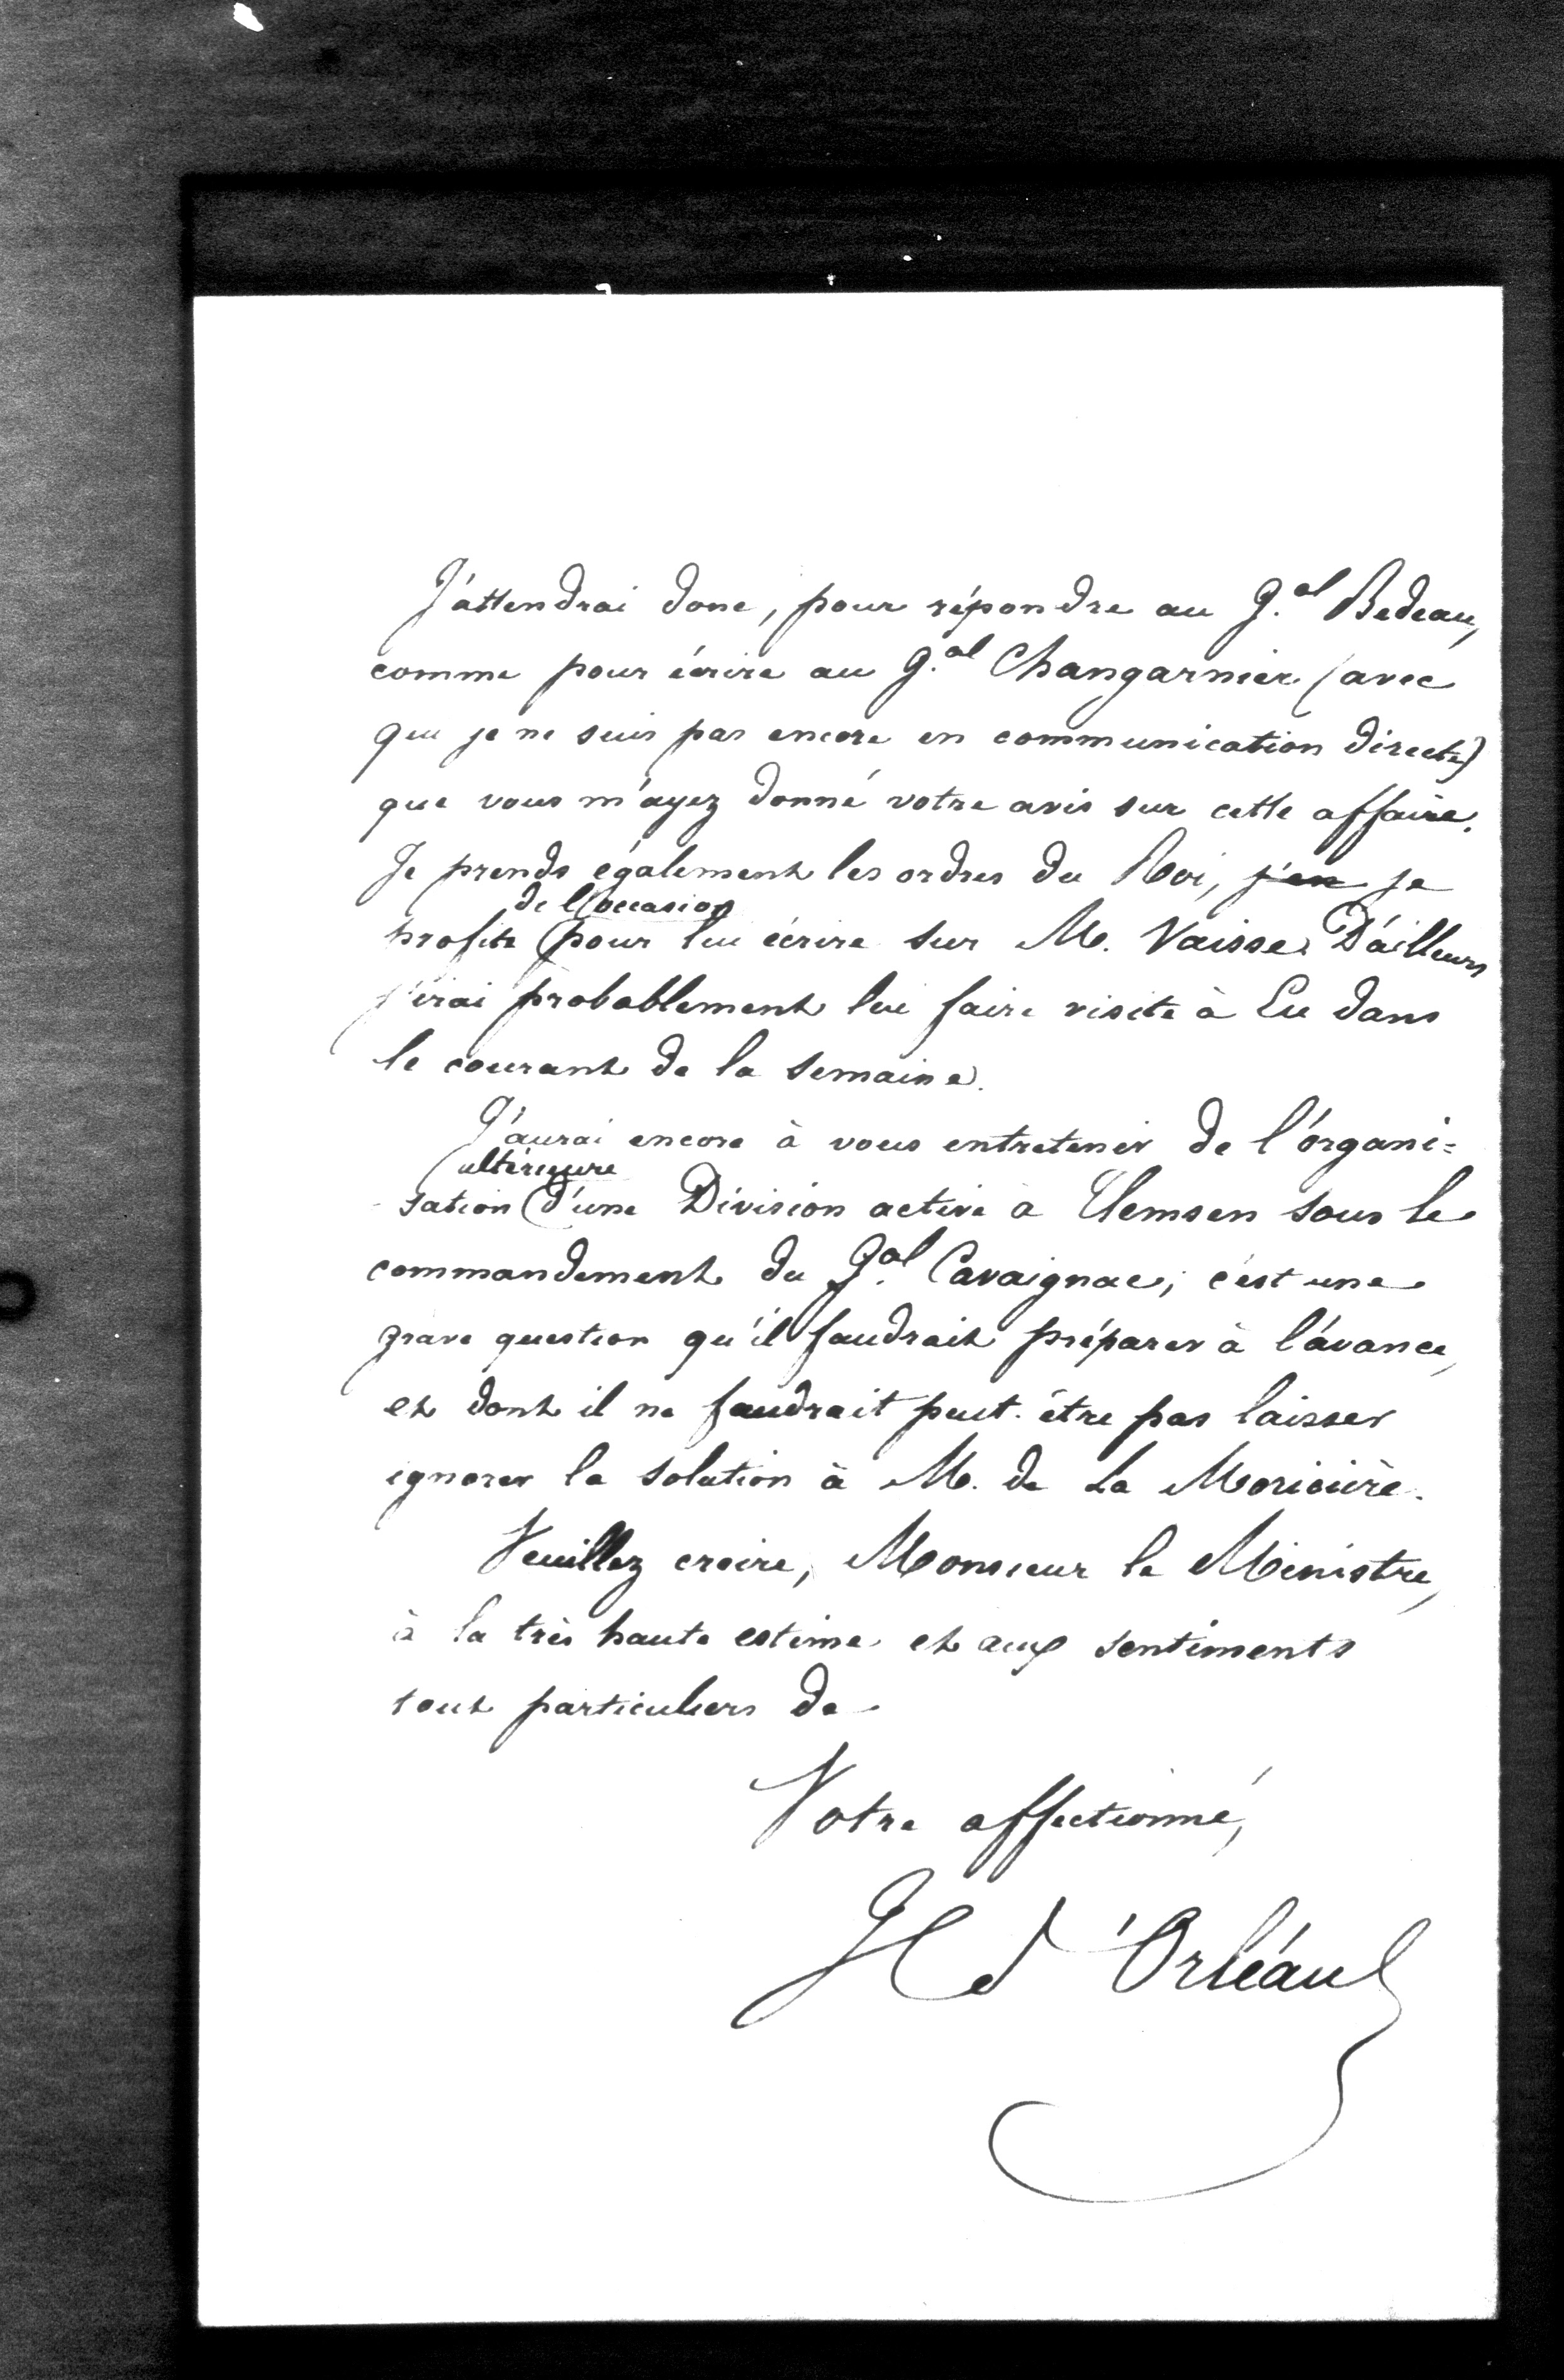 J'attendrai donc, pour répondre au G.al Bedeau,
comme pour écrire au G.al Changarnier (avec
qui je ne suis pas encore en communication directe)
que vous m'ayez donné votre avis sur cette affaire.
Je prends également les ordres du Roi, j'en je
de l'occasion
profite pour lui écrire sur M. Vaisse. D'ailleurs
j'irai probablement lui faire visite à Eu dans
le courant de la semaine.
J'aurai encore à vous entretenir de l'organi=
ultérieure
-sation d'une Division active à Tlemsen sous le
commandement du G.al Cavaignac; c'est une
grave question qu'il faudrait préparer à l'avance,
et dont il ne faudrait peut-être pas laisser
ignorer la solution à M. de La Moricière.
Veuillez croire, Monsieur le Ministre,
à la très haute estime et aux sentiments
tout particuliers de
Votre affectionné,
H d'Orléans